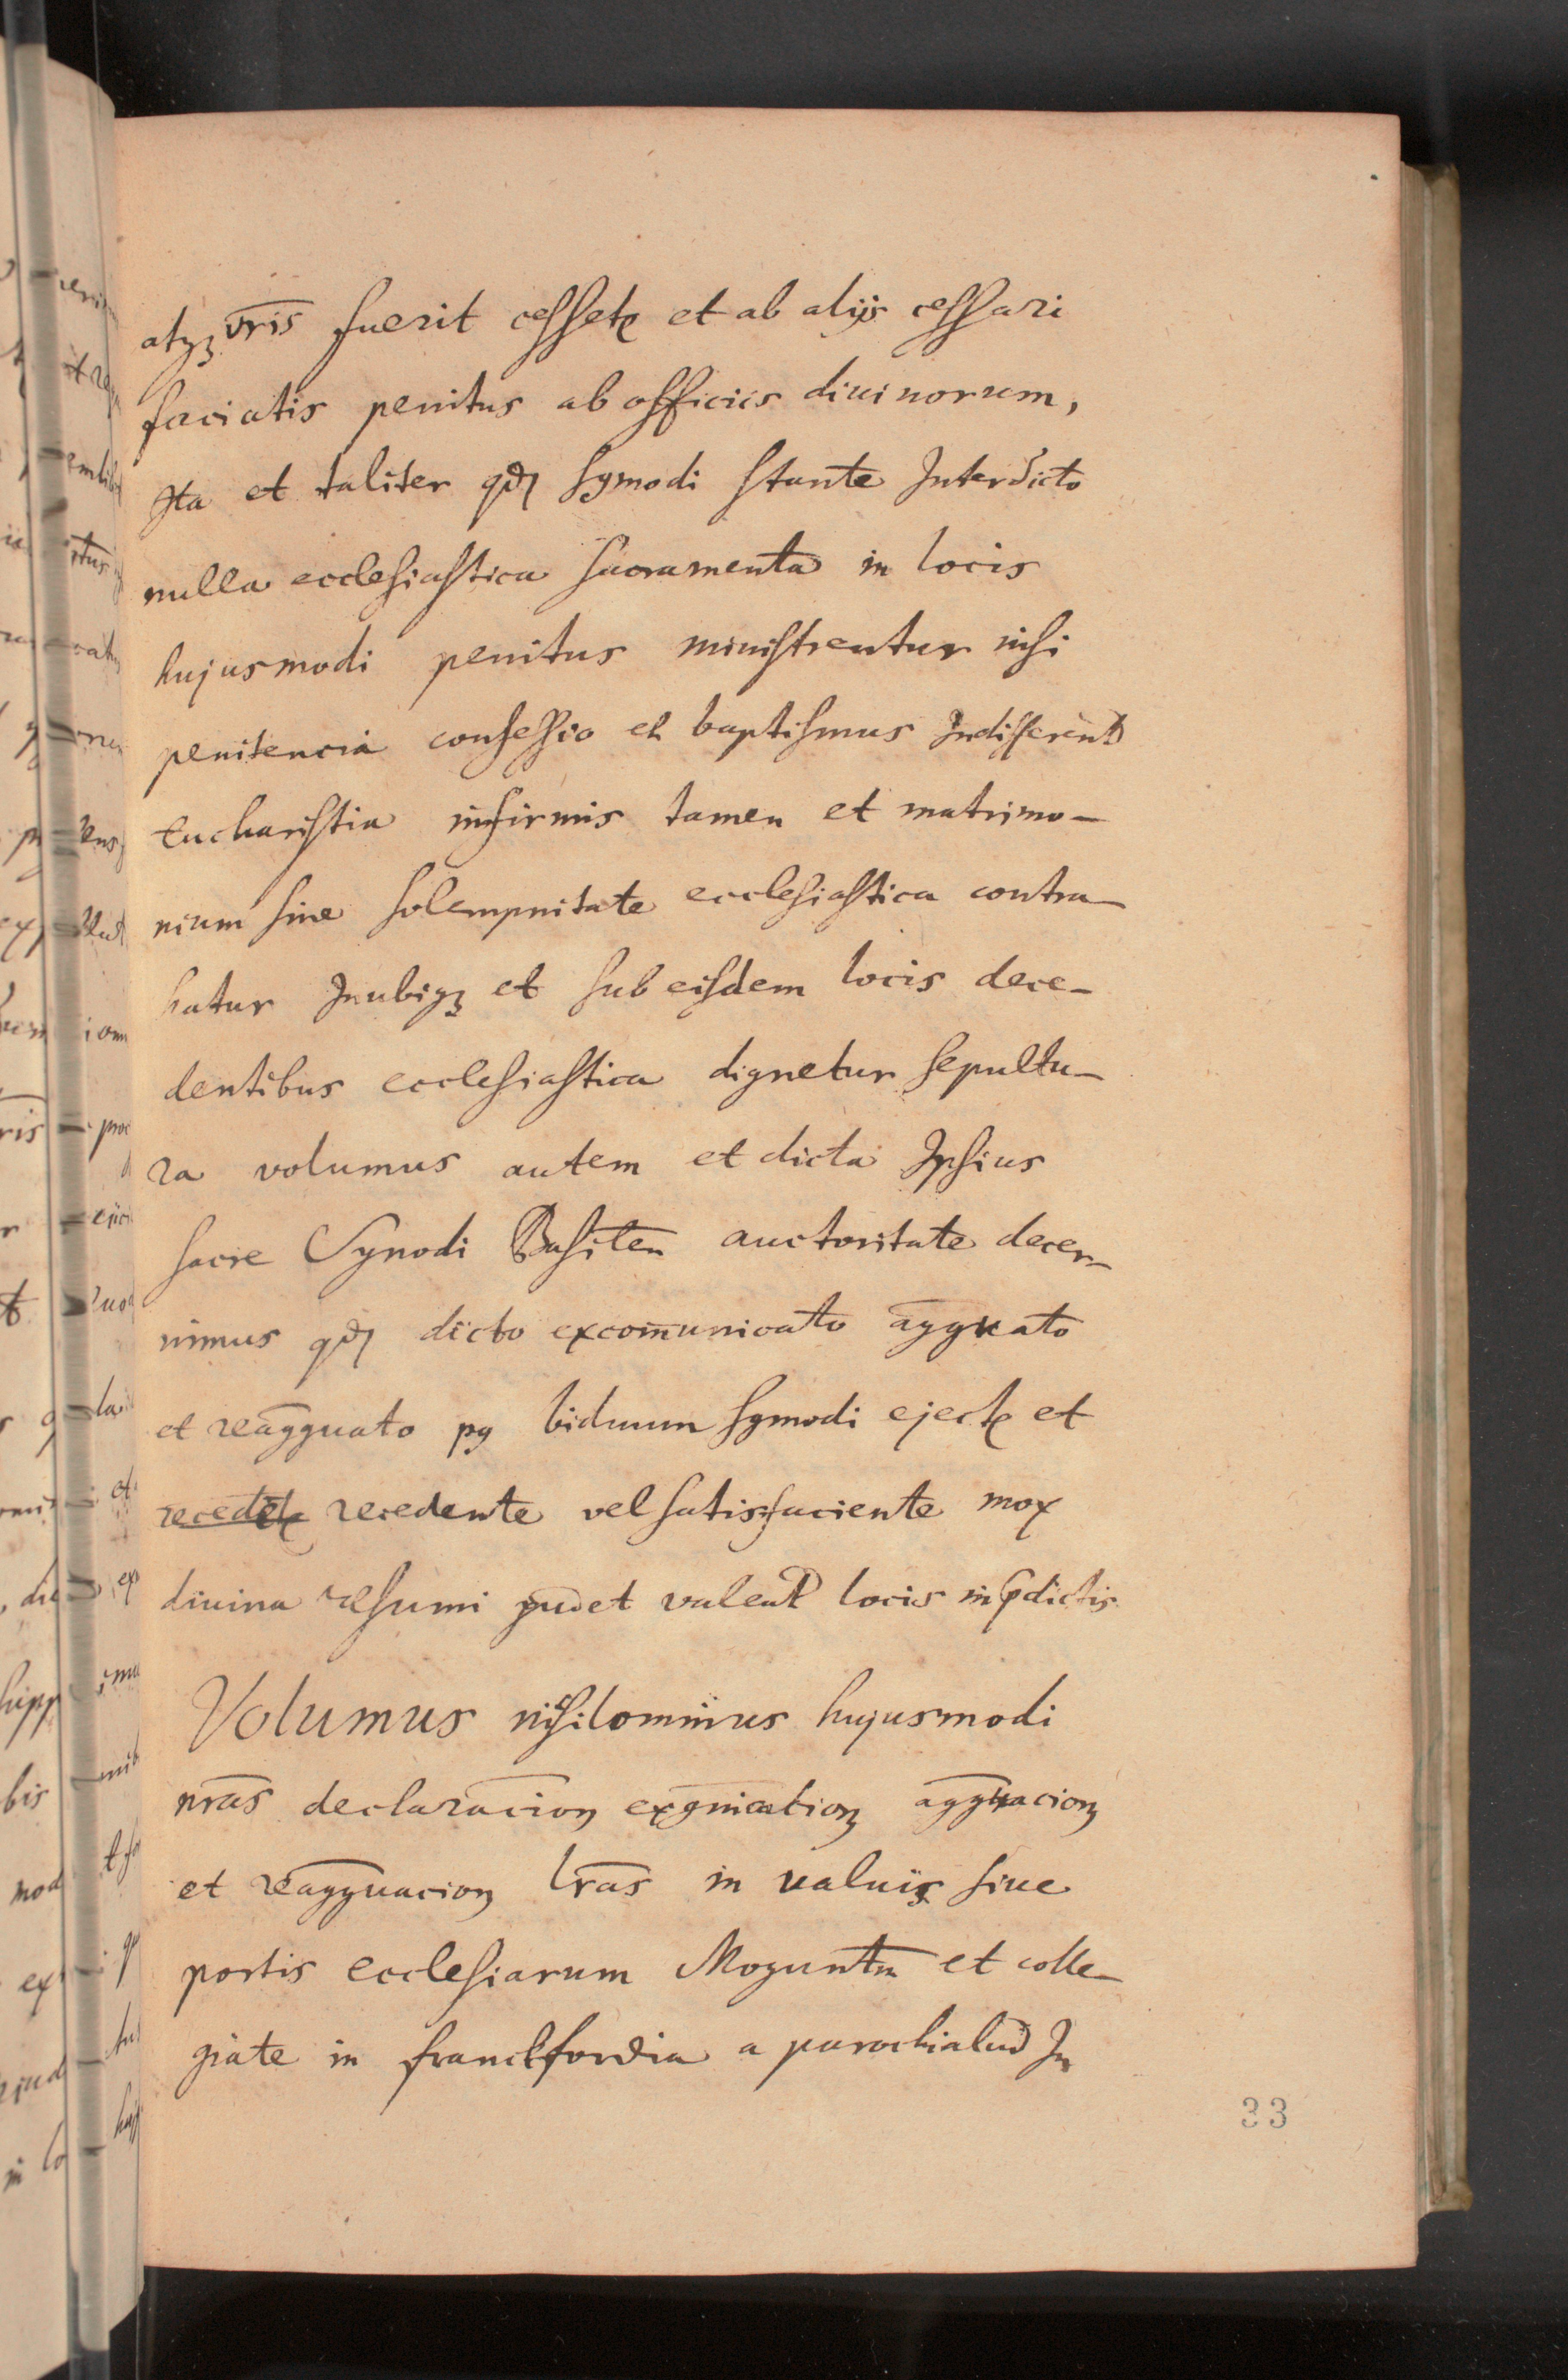 atqꝫ vr̄is fuerit cessetꝭ et ab alijs cessari
faciatis penitus ab officiis diuinorum,
Ita et taliter qđ hymodi stante Interdicto
nulla ecclesiastica sacramenta in locis
hujusmodi penitus ministrentur nisi
penitencia confessio et baptismus Indifferent
Eucharistia infirmis tamen et matrimo-
nium sine solempnitate ecclesiastica contra-
hatur Inubiqꝫ et sub eisdem locis dece-
dentibus ecclesiastica dignetur sepultu-
ra volumus autem et dicta Ipsius
sacre Synodi Basilen̄ auctoritate decer-
nimus qđ dicto excom̄unicato aggꝛ̄uato
et reāgguato pꝫ biduum hymodi ejectꝭ et
recedente vel satisfaciente mox
diuina resumi valeant locis in p̄dictis
Volumus nihilominus hujusmodi
nr̄as declarac̄ionꝫ aggrauacionꝫ
et reaggrauacionꝫ lr̄as in valuis siue
portis ecclesiarum Moguntīn et colle-
giate in franckfordia a parochialiū In
33